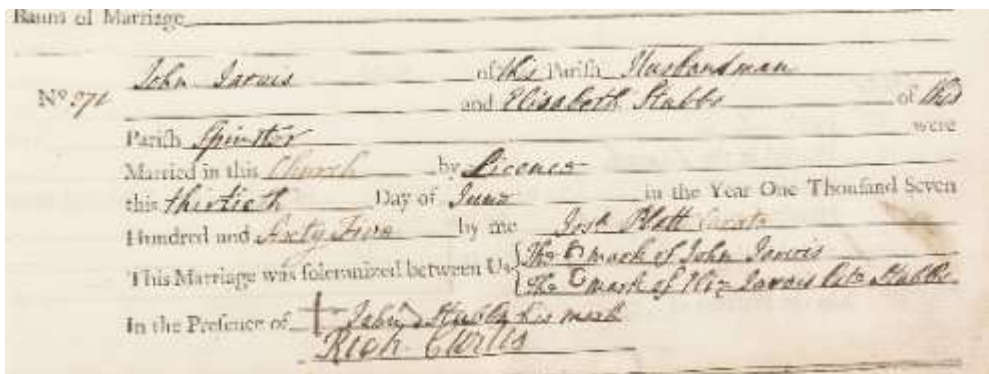 Banns of Marriage
John Jarvis of this Parish Husbandman
Nº 371 and Elisabeth Stubbs of this
Parish Spinster were
Married in this Church by Licence
this thirtieth Day of June in the Year One Thousand Seven
Hundred and Sixty Five by me Josh Plott Curate
This Marriage was solemnized between Us The mark of John Jarvis
The mark of Eliz Jarvis late Stubbs
In the Presence of John Stubbs his mark
Rich Curtis